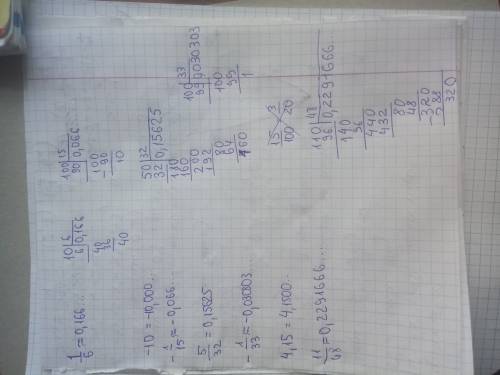 1/6 = 0,166...
-10 = -10,000...
-1/15 = -0,066...
5/32 = 0,15625
-1/33 = -0,030303
4,15 = 4,1500..
11/48 = 0,2291666...
10|6
6|0,166
40
36
40
100|15
90|0,066...
-100
90
10
50|32
32|0,15625
180
160
200
192
80
64
160
100|33
99|0,030303
100
99
1
15 3
100 20
110|48
96|0,2291666...
140
96
440
432
80
48
-320
288
320